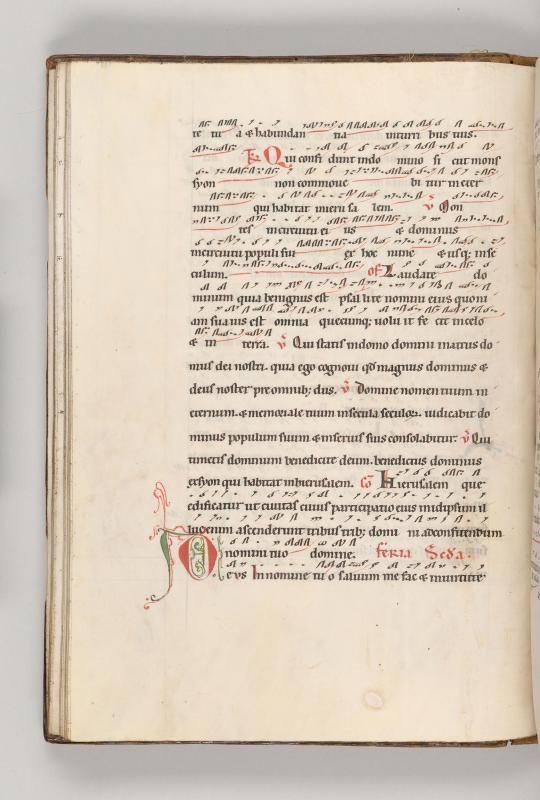 te tu a & habundan tia inturri bus tuis.
Tr. Qui confi dunt indo mino si cut mons
syon non commove bi tur in eter
num qui habitat inieru sa lem. v Mon
tes incircuitu ei us & dominus
incircuitu populi sui ex hoc nunc & usq; inse
culum. of Laudate do
minum quia benignus est psal lite nomini eius quoni
am sua vis est omnia quecumq; voluit fe cit incelo
& in terra. v Qui statis indomo domini inatriis do
mus dei nostri. quia ego cognovi qd magnus dominus &
deus noster pre omnib; diis. v Domine nomen tuum in
eternum. & memoriale tuum insecula seculor. iudicabit do
minus populum suum & inservis suis consolabitur. v Qui
timetis dominum benedicite deum. benedictus dominus
exsyon qui habitat inhierusalem. Co Hierusalem que
edificatur ut civitas cuius participatio eius inidipsum il
luc enim ascenderunt tribus trib; domi ni adconfitendum
nomini tuo domine. feria Scda.
Deus In nomine tu o salvum me fac & invirtute